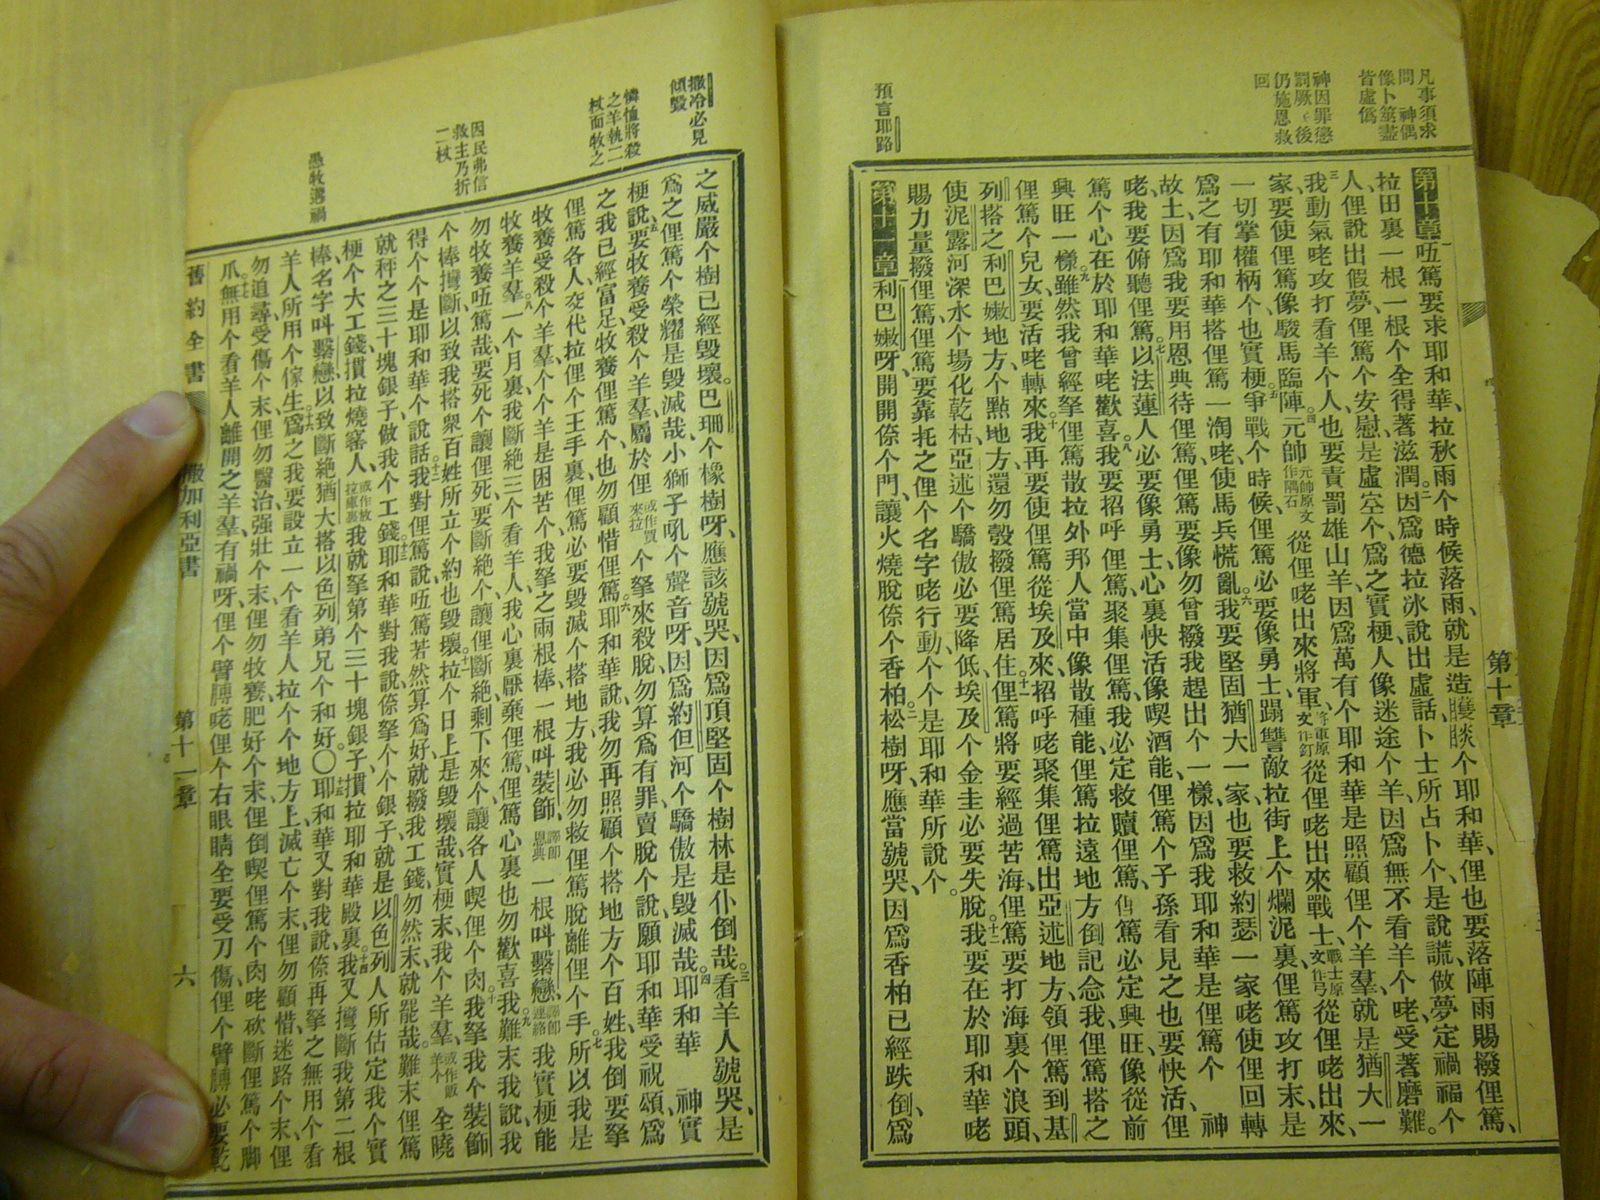 凡事須求
問　神偶
像卜筮盡
皆虛僞
神因罪懲
罰厥後
仍施恩救
回
預言耶路
第十章
第十章㕶篤要求耶和華、拉秋雨个時候落雨、就是造
个耶和華、俚也要落陣雨賜撥俚篤、
拉田裏一根一根个全得著滋潤。二因爲德拉冰說出虛話、卜士所占卜个是說謊做夢定禍福个
人、俚說出假夢、俚篤个安慰是虛空个、爲之實梗、人像迷途个羊、因爲無不看羊个咾、受著磨難。
三我動氣咾攻打看羊个人、也要責罰雄山羊、因爲萬有个耶和華是照顧俚个羊羣、就是猶大一
家、要使俚篤像駿馬臨陣。四元帥元帥原文作隅石從俚咾出來、將軍將軍原文作釘從俚咾出來、戰士戰士原文作弓從俚咾出來、
一切掌權柄个也實梗。五爭戰个時候、俚篤必要像勇士、蹋讐敵拉街上个爛泥裏、俚篤攻打末、是
爲之有耶和華搭俚篤一淘咾、使馬兵慌亂。六我要堅固猶大一家、也要救約瑟一家咾、使俚回轉
故土、因爲我要用恩典待俚篤、俚篤要像勿曾撥我趕出个一樣、因爲我耶和華是俚篤个　神
咾、我要俯聽俚篤。七以法蓮人必要像勇士、心裏快活像喫酒能、俚篤个子孫看見之也要快活、俚
篤个心在於耶和華咾歡喜。八我要招呼俚篤聚集俚篤、我必定救贖俚篤、俚篤必定興旺、像從前
興旺一樣。九雖然我曾經拏俚篤散拉外邦人當中、像散種能、俚篤拉遠地方倒記念我、俚篤搭之
俚篤个兒女、要活咾轉來。十我再要使俚篤從埃及來、招呼咾聚集俚篤出亞述地方、領俚篤到基
列搭之利巴嫩地方、个點地方、還勿彀撥俚篤居住。十一俚篤將要經過苦海、俚篤要打海裏个浪頭、
使泥露河深水个場化乾枯、亞述个驕傲必要降低、埃及个金圭必要失脫。十二我要在於耶和華咾
賜力量撥俚篤、俚篤要靠托之俚个名字咾行動、个个是耶和華所說个。
第十一章利巴嫩呀、開開倷个門、讓火燒脫倷个香柏。二松樹呀、應當號哭、因爲香柏已經跌倒、爲
撒冷必見
傾毀
憐恤將殺
之羊執二
杖而牧之
因民弗信
救主乃折
二杖
愚牧遇禍
之威嚴个樹已經毀壞。巴珊个橡樹呀、應該號哭、因爲頂堅固个樹林是仆倒哉。三看羊人號哭、是
爲之俚篤个榮耀是毀滅哉、小獅子吼个聲音呀、因爲約但河个驕傲是毀滅哉。四耶和華　神實
梗說、要牧養受殺个羊羣。五屬於俚或作買來拉个、拏來殺脫、勿算爲有罪、賣脫个說、願耶和華受祝頌、爲
之我已經富足、牧養俚篤个、也勿顧惜俚篤。六耶和華說、我勿再照顧个搭地方个百姓、我倒要拏
俚篤各人、交代拉俚个王手裏、俚篤必要毀滅个搭地方、我必勿救俚篤脫離俚个手。七所以我是
牧養受殺个羊羣、个个羊是困苦个、我拏之兩根棒、一根呌裝飾、譯卽恩典一根呌繫戀、譯卽連絡我實梗能
牧養羊羣。八一个月裏、我斷絕三个看羊人、我心裏厭棄俚篤、俚篤心裏也勿歡喜我。九難末我說、我
勿牧養㕶篤哉、要死个讓俚死、要斷絕个、讓俚斷絕、剩下來个、讓各人喫俚个肉。十我拏我个裝飾
个棒、拗斷、以致我搭衆百姓所立个約也毀壞拉。十一个日上是毀壞哉、實梗末、我个羊羣、或作販羊个全曉
得个个是耶和華个說話。十二我對俚篤說、㕶篤若然算爲好、就撥我工錢、勿然末、就罷哉。難末俚篤
就秤之三十塊銀子、做我个工錢。十三耶和華對我說、倷拏个个銀子、就是以色列人所估定我个實
梗个大工錢、摜拉燒窰人、或作放拉庫裏我就拏第个三十塊銀子、摜拉耶和華殿裏。十四我又拗斷我第二根
棒、名字呌繫戀、以致斷絕猶大搭以色列弟兄个和好。〇十五耶和華又對我說、倷再拏之無用个看
羊人所用个傢生。十六爲之我要設立一个看羊人拉个个地方上、滅亡个末、俚勿顧惜、迷路个末、俚
勿追尋、受傷个末、俚勿醫治、强壯个末、俚勿牧養、肥好个末、俚倒喫俚篤个肉咾、砍斷俚篤个脚
爪。十七無用个看羊人離開之羊羣、有禍呀、俚个臂膊咾俚个右眼睛、全要受刀傷、俚个臂膊必要乾
舊約全書　撒加利亞書　第十一章　六